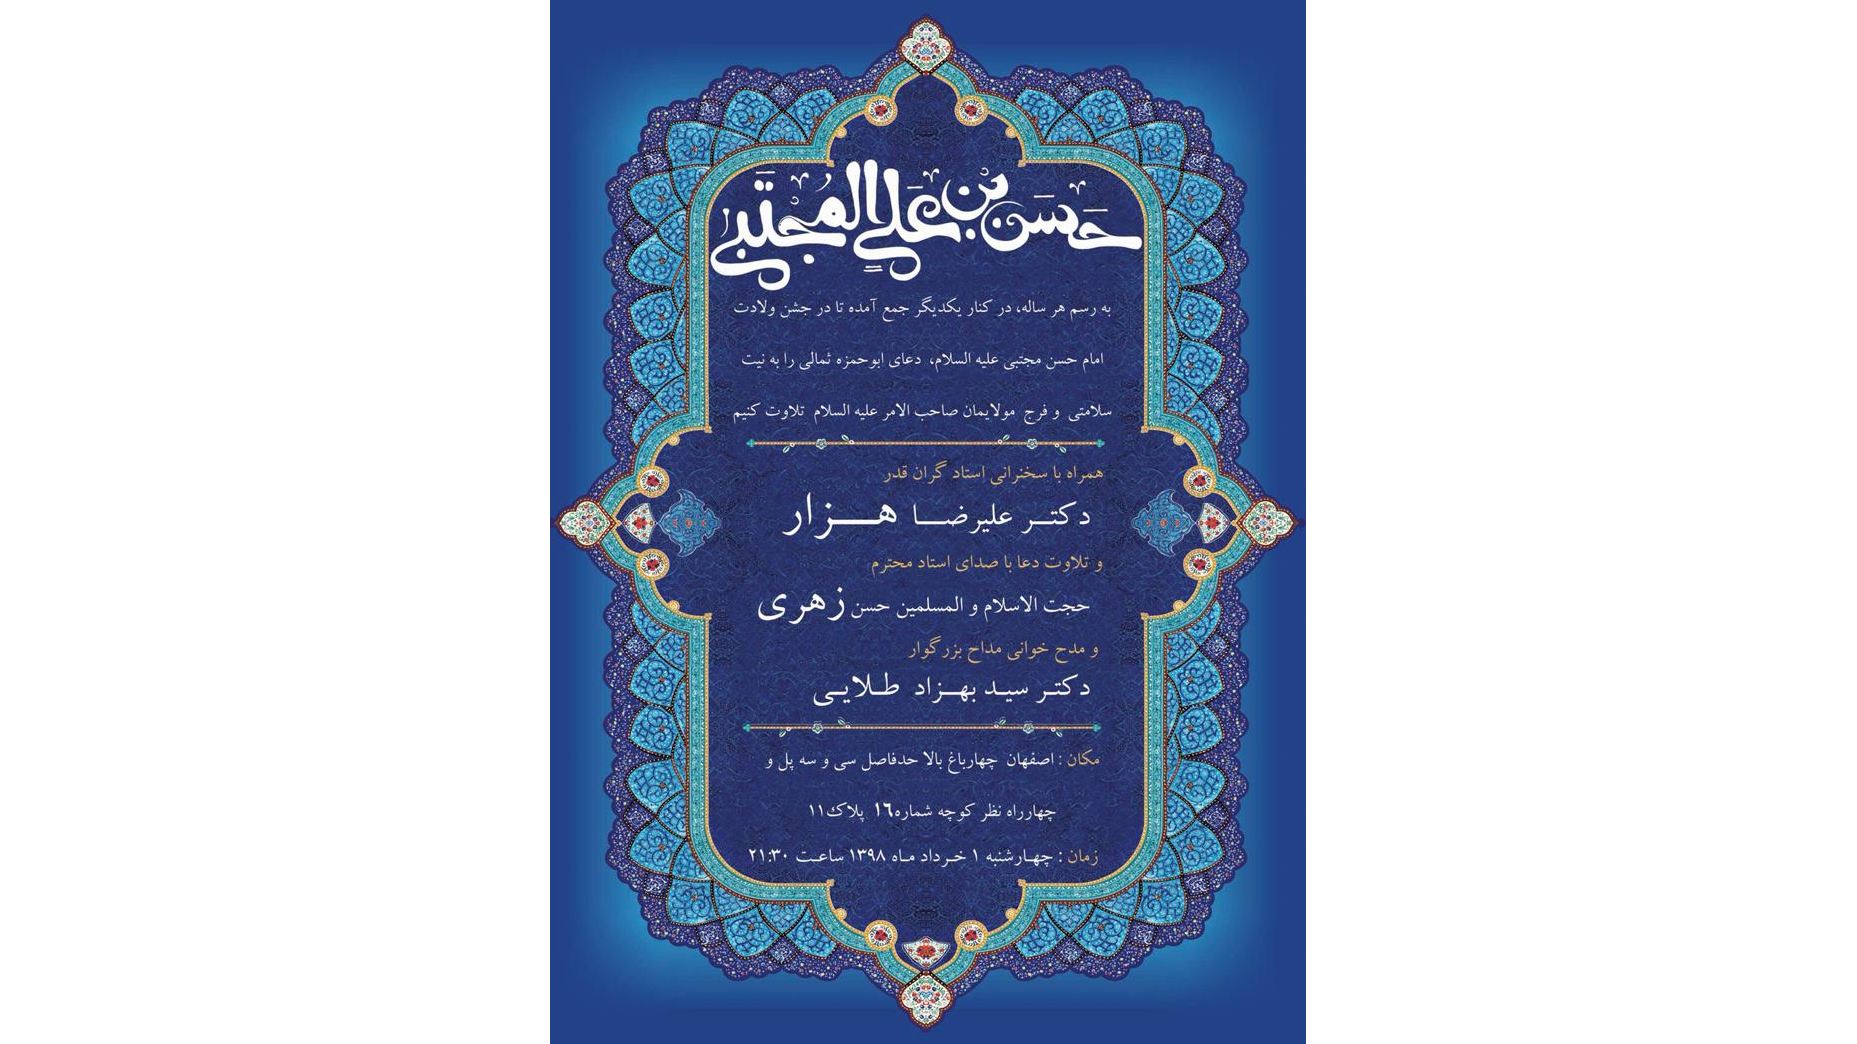 حَسَن بن عَلي المُجتَبی
به رسم هر ساله، در کنار یکدیگر جمع آمده تا در جشن ولادت
امام حسن مجتبی علیه السلام، دعای ابوحمزه ثمالی را به نیت
سلامتی و فرج مولایمان صاحب الامر علیه السلام تلاوت کنیم
همراه با سخنرانی استاد گران قدر
دکتر علیرضا هزار
و تلاوت دعا با صدای استاد محترم
حجت الاسلام و المسلمین حسن زهری
و مدح خوانی مداح بزرگوار
دکتر سید بهزاد طلایی
مکان : اصفهان چهارباغ بالا حدفاصل سی و سه پل و
چهارراه نظر کوچه شماره۱۶ پلاک۱۱
زمان : چهارشنبه ۱ خرداد ماه ۱۳۹۸ ساعت ۲۱:۳۰